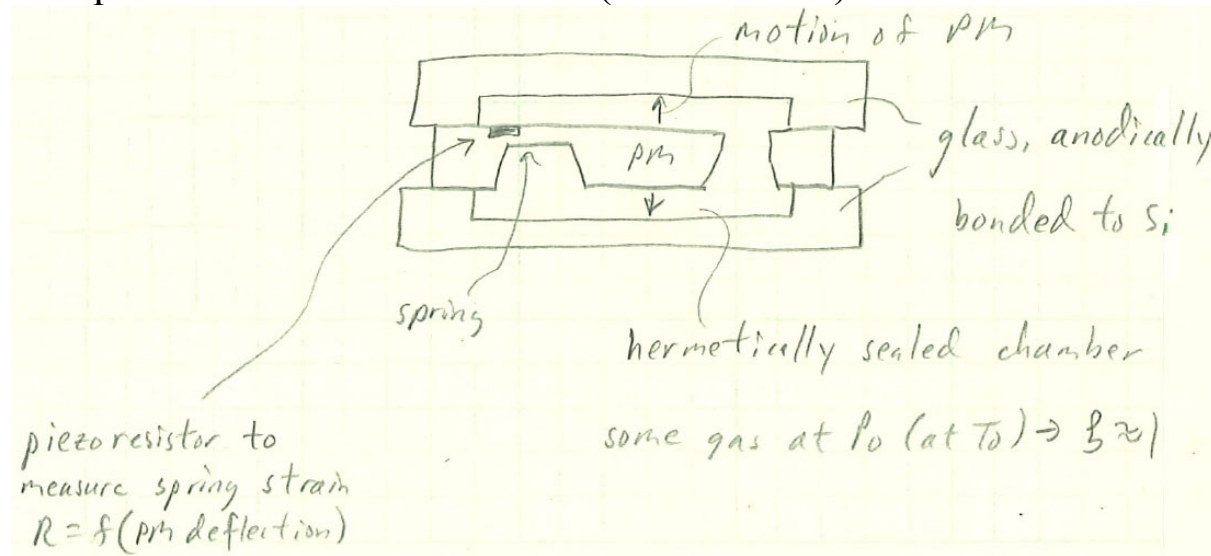 motion of pm
glass, anodically
bonded to Si
pm
spring
hermetically sealed chamber
some gas at P0 (at T0) → ξ ≈ 1
piezoresistor to
measure spring strain
R = f(pm deflection)